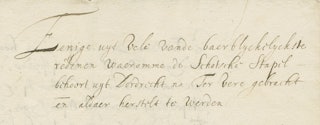 Eenige uyt vele vande baerblyckelyckste
redenen waeromme de Schotsche Stapel
behoort uyt Dordrecht na Ter Vere gebracht
en aldaer herstelt te werden